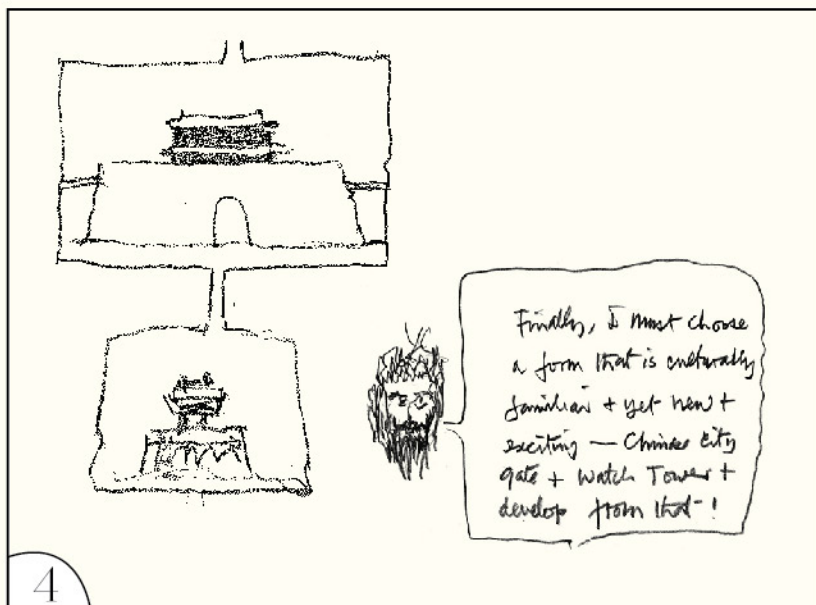 Finally, I must choose
a form that is culturally
familiar + yet new +
exciting — Chinese city
gate + Watch Tower +
develop from that!
4